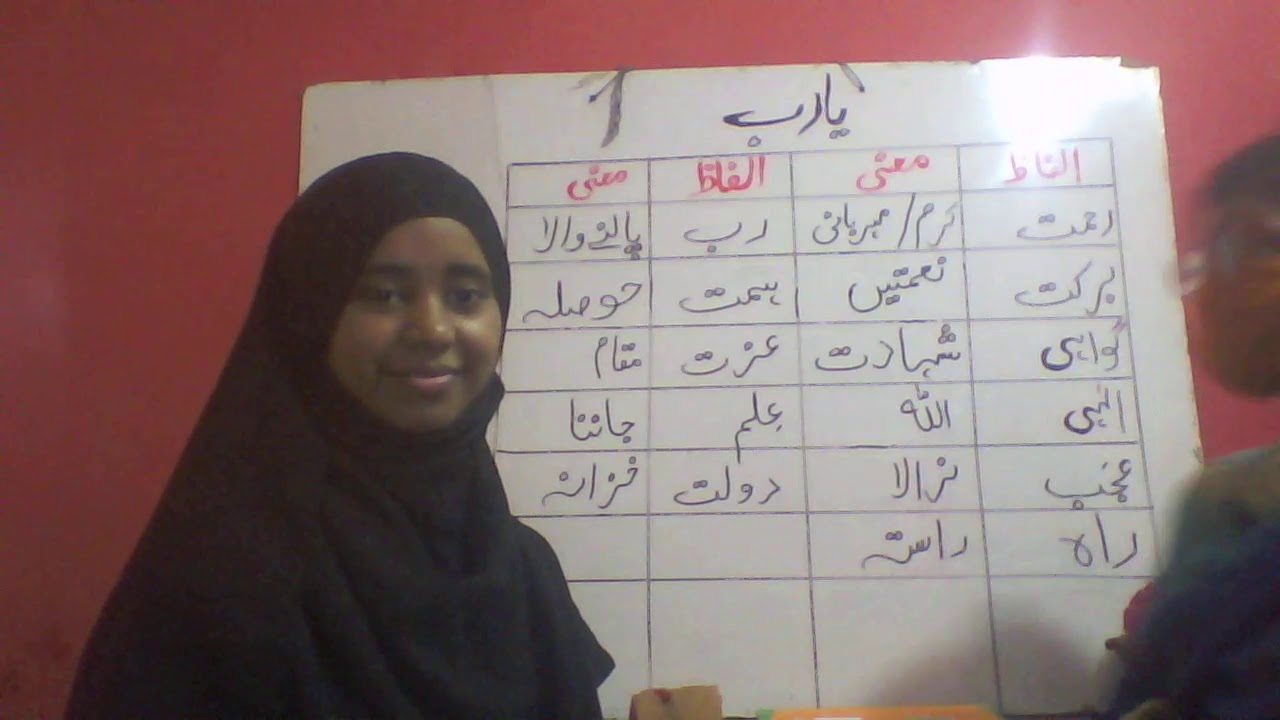 یارب
الفاظ معنی الفاظ معنی
رحمت کرم/مہربانی رب پالنے والا
برکت نعمتیں ہمت حوصلہ
گواہی شہادت عزت مقام
الہی اللہ عِلم جاننا
عجب نرالا دولت خزانہ
راہ راستہ